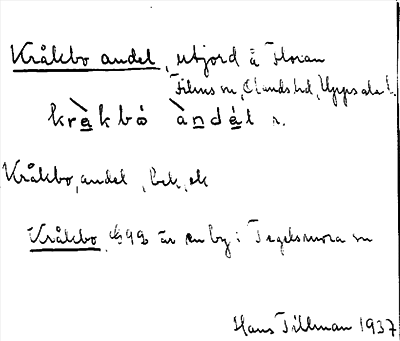 Kråkbo andel, utjord å Floran
Films sn, Olands hd, Uppsala l.
kràkbo àndél n.
Kråkbo, andel, bek, ek
Kråkbo, är en by i Tegelsmora sn
Hans Tillman 1937